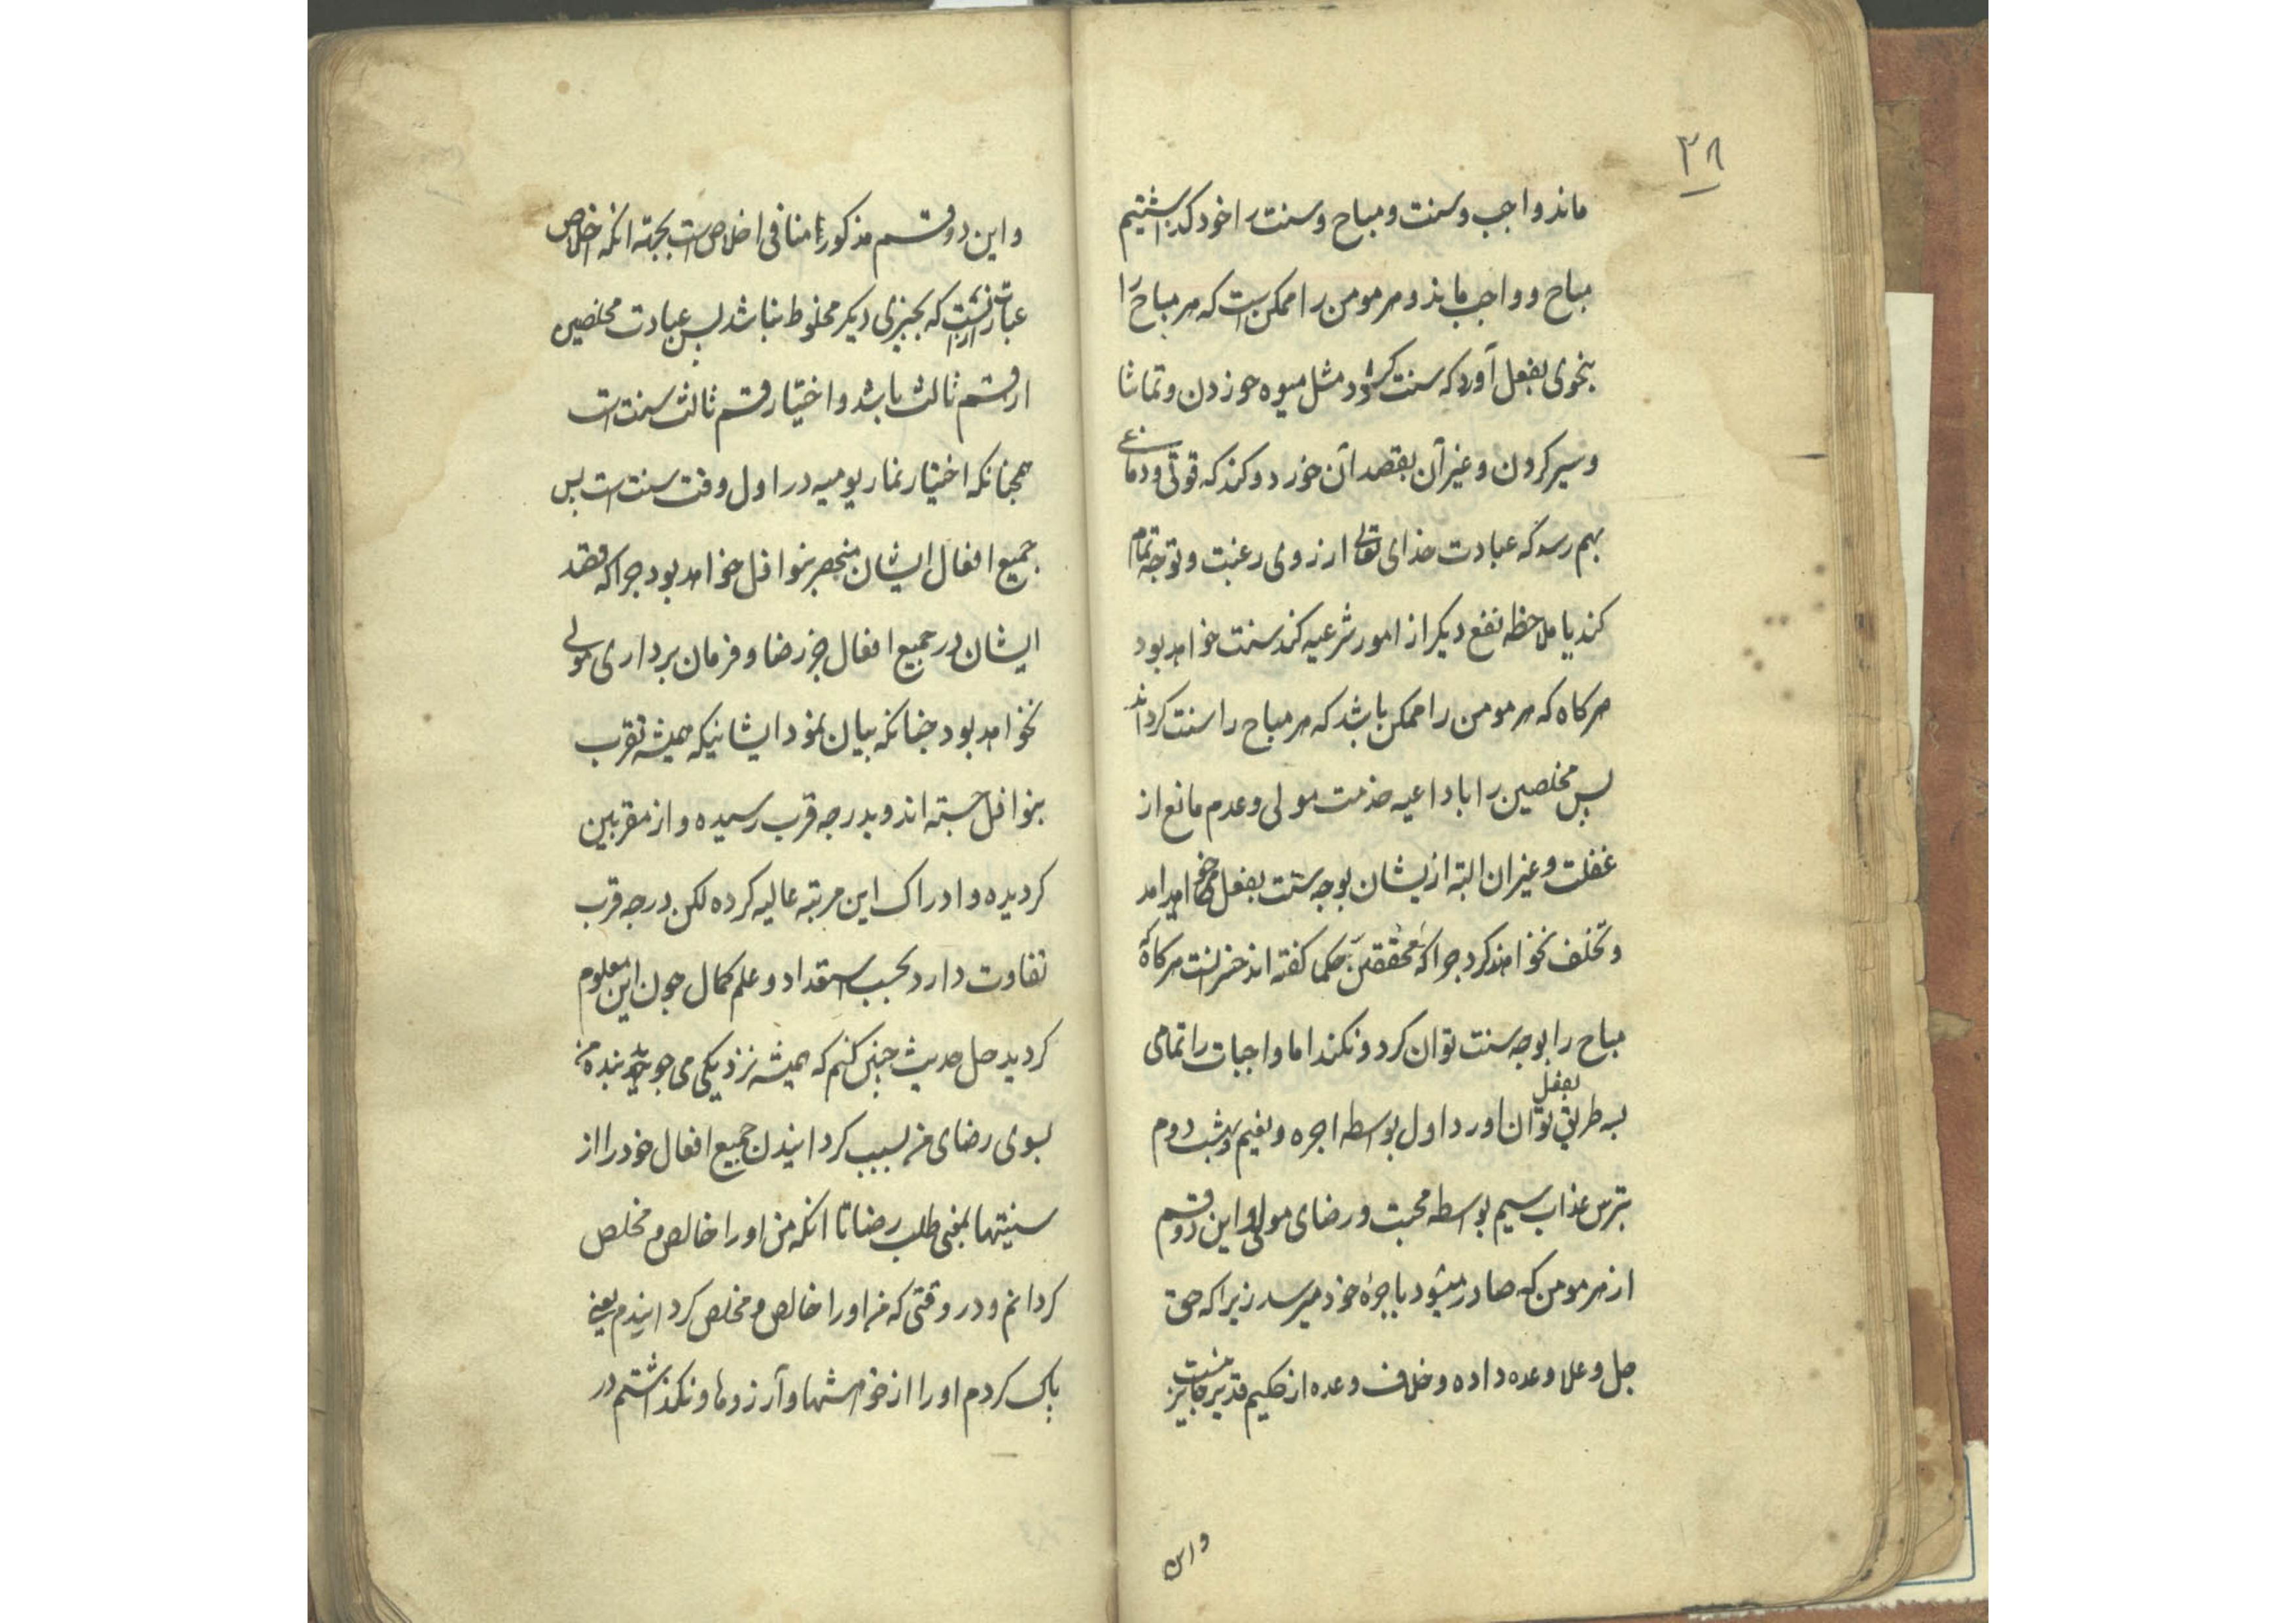 ۲۸
ماند واجب و سنت و مباح و سنت را خود كذاشتيم
مباح و واجب ماند و هر مومن را ممكن است كه هر مباح را
بنحوى بفعل آورد كه سنت كردد مثل ميوه خوردن و تماشا
و سير كردن و غير آن بقصد آن خورد و كند كه قوتى و دماغى
بهم رسد كه عبادت خداى تعالى از روى رغبت و توجه تمام
كند يا ملاحظه نفع ديكر از امور شرعيه كند سنت خواهد بود
هركاه كه هر مومن را ممكن باشد كه هر مباح را سنت كرداند
پس مخلصين را با داعيه خدمت مولى و عدم مانع از
غفلت و غير آن البته ازيشان بوجه سنت بفعل خواهد امد
و تخلف نخواهند كرد چرا كه محققين حكما كفته اند هركاه كه
مباح را بوجه سنت توان كرد و نكند اما واجبات را تمامى
بسه طريق بفعل توان اورد اول بواسطه اجره و نعيم بهشت دوم
بترس عذاب سيم بواسطه محبت و رضاى مولى و اين دو قسم
از هر مومن كه صادر ميشود باجرهٔ خود ميرسد زيرا كه حق
جل و علا وعده داده و خلاف وعده از حكيم قدير جايز نيست
و اين
و اين دو قسم مذكور را منافى اخلاص است بجهته انكه اخلاص
عبارت از آنست كه بچيزى ديكر مخلوط نباشد پس عبادت مخلصين
از قسم ثالث باشد و اختيار قسم ثالث سنت است
همچنانكه اختيار نماز يوميه در اول وقت سنت است پس
جميع افعال ايشان منحصر بنوافل خواهد بود چرا كه قصد
ايشان در جميع افعال جز رضا و فرمان بردارى مولى
نخواهد بود چنانكه بيان نمود ايشانيكه هميشه تقرب
بنوافل جسته اند و بدرجه قرب رسيده و از مقربين
كرديده و ادراك اين مرتبه عاليه كرده لكن درجه قرب
تفاوت دارد بحسب استعداد و علم كمال چون اين معلوم
كرديد حل حديث چنين كنم كه هميشه نزديكى مى جويد بنده من
بسوى رضاى من بسبب كردانيدن جميع افعال خود را از
سنيتها بمعنى طلب رضا تا انكه من او را خالص و مخلص
كردانم و در وقتى كه من او را خالص و مخلص كردانيدم يعنى
پاك كردم او را از خواهشها و آرزوها و نكذاشتم در